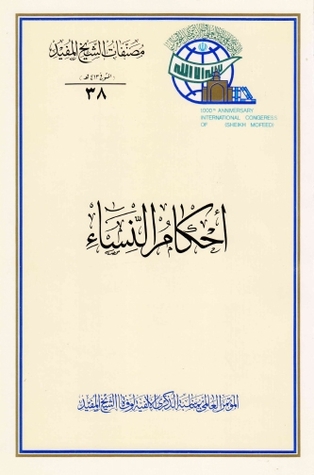 مصنفات الشيخ المفيد
(المتوفى ٤١٣ هـ)
٣٨
لا اله الا الله
1000TH ANNIVERSARY
INTERNATIONAL CONGRESS
OF SHEIKH MOFEED
أحكام النساء
المؤتمر العالمي بمناسبة الذكرى الألفية لوفاة الشيخ المفيد